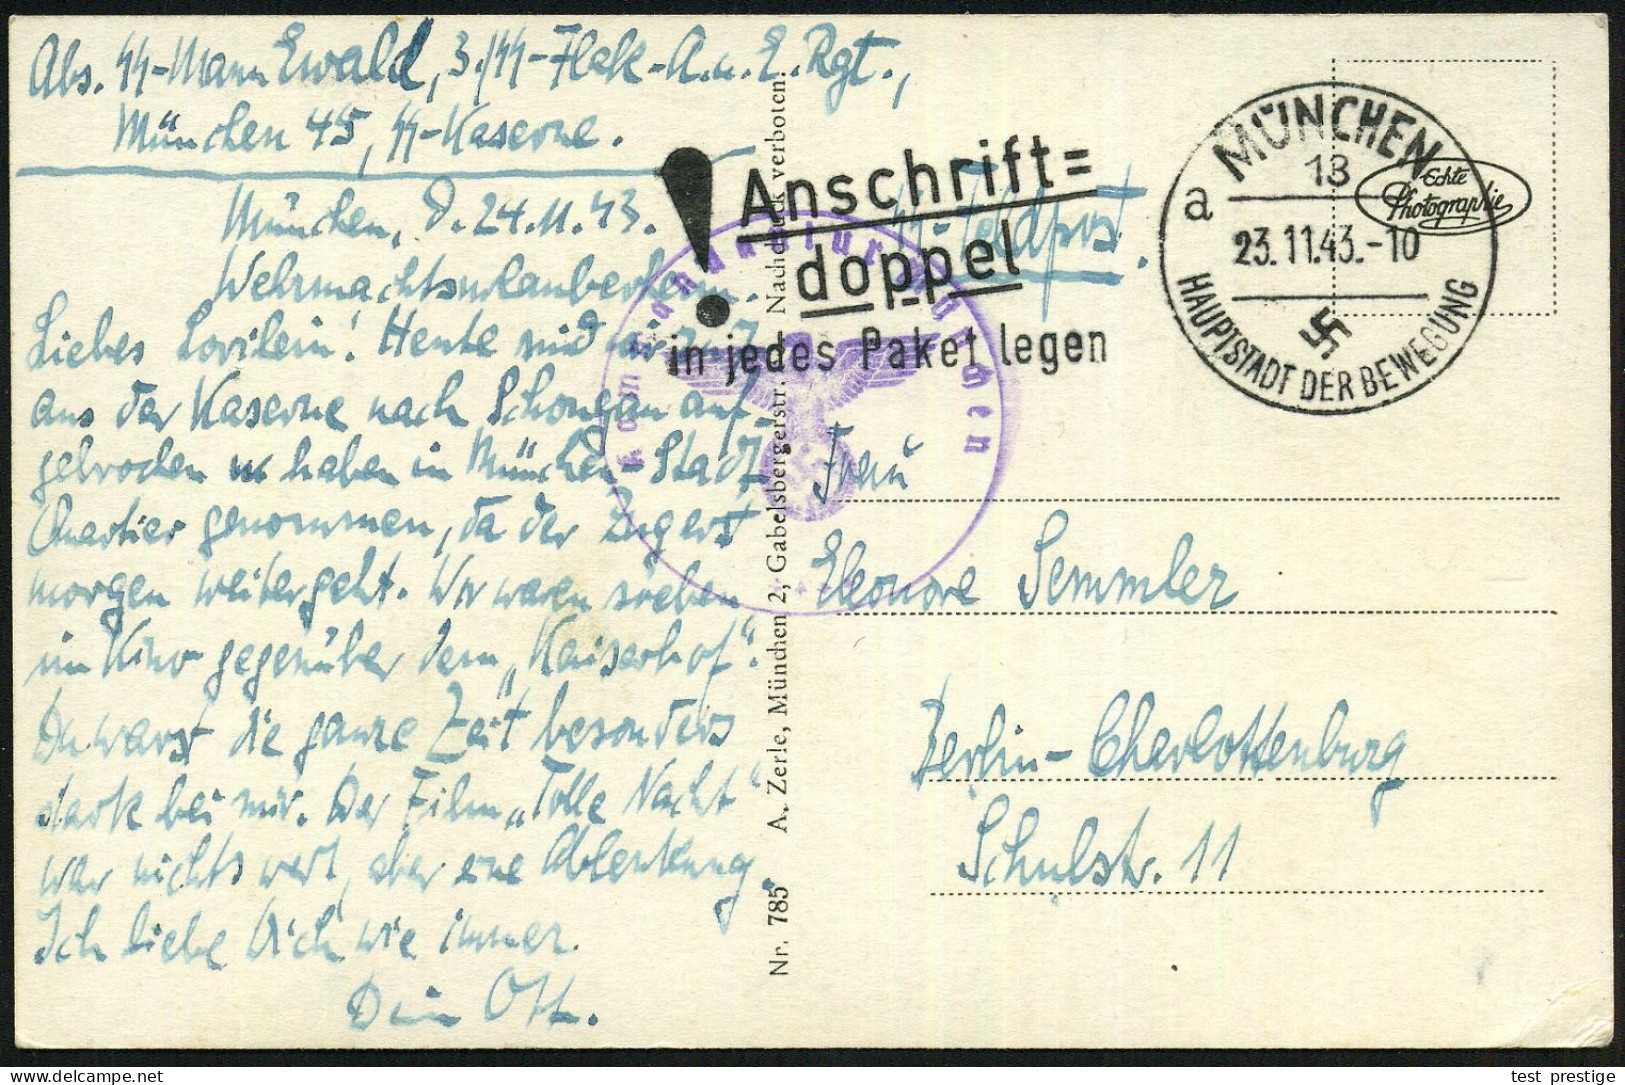 Abs. SS-Mann Ewald, 3./SS-Flak-A.u.E.Rgt.,
München 45, SS-Kaserne.
München, d. 24.11.43.
Wehrmachtsurlauberheim.
Liebes Lorilein! Heute sind wir
aus der Kaserne nach Schongau auf-
gebrochen u. haben in München-Stadt
Quartier genommen, da der Zug erst
morgen weitergeht. Wir waren soeben
im Kino gegenüber dem „Kaiserhof“.
Du warst die ganze Zeit besonders
stark bei mir. Der Film „Tolle Nacht“
war nichts wert, aber eine Ablenkung.
Ich liebe Dich wie immer.
Dein Ott.
Nr. 785 A. Zerle, München 2, Gabelsbergerstr. Nachdruck verboten.
! Anschrift=
doppel
in jedes Paket legen
SS-Feldpost.
MÜNCHEN
13
a
23.11.43.-10
HAUPTSTADT DER BEWEGUNG
Echte
Photographie
Frau
Eleonore Semmler
Berlin-Charlottenburg
Schulstr. 11
test_prestige